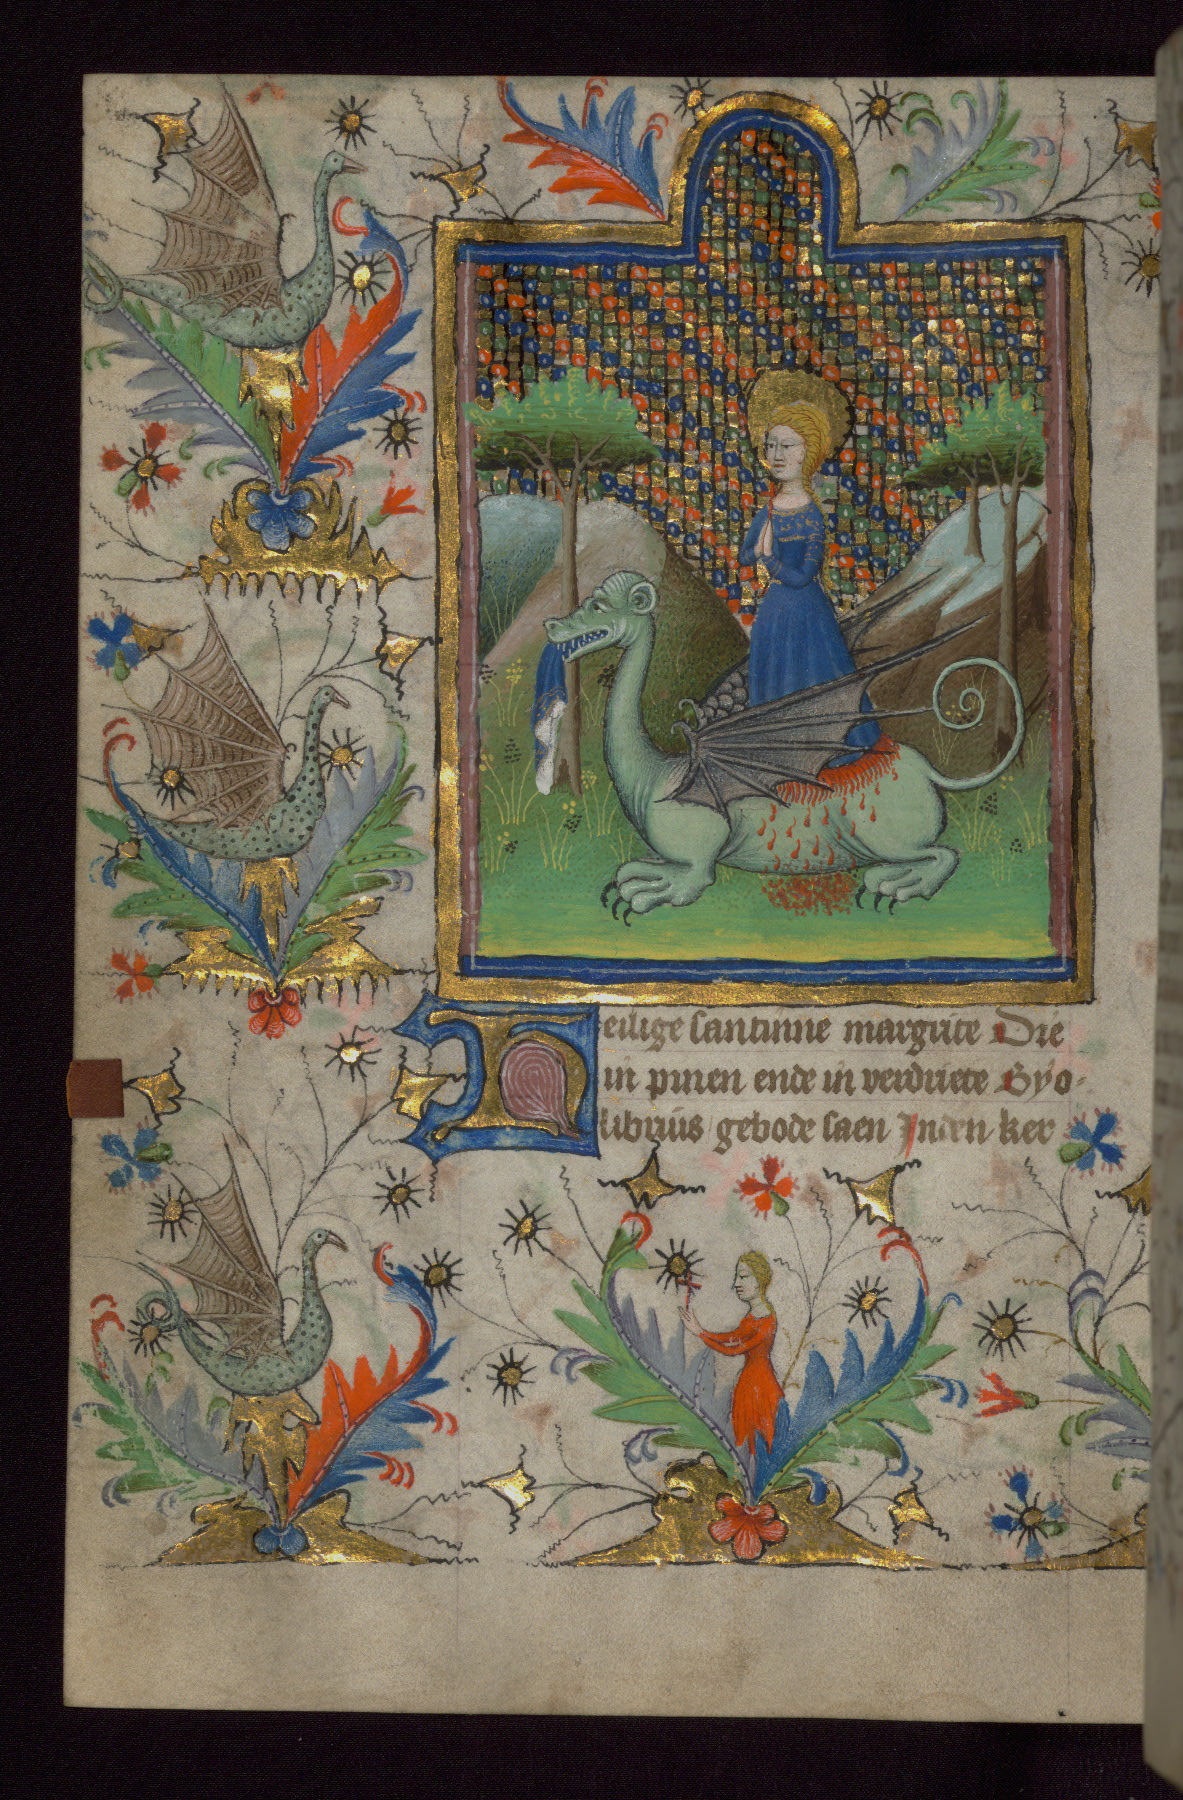 Heilige santinne margriite Die
in pinen ende in verdriete By o-
librius gebode saen Inden ker